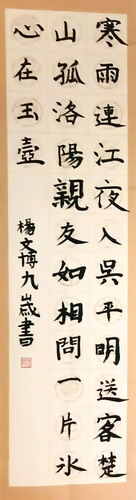 寒雨連江夜入吳平明送客楚
山孤洛陽親友如相問一片冰
心在玉壺
楊文博九歲書